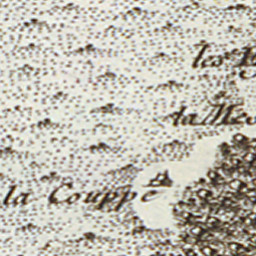 les
la
la Couppe